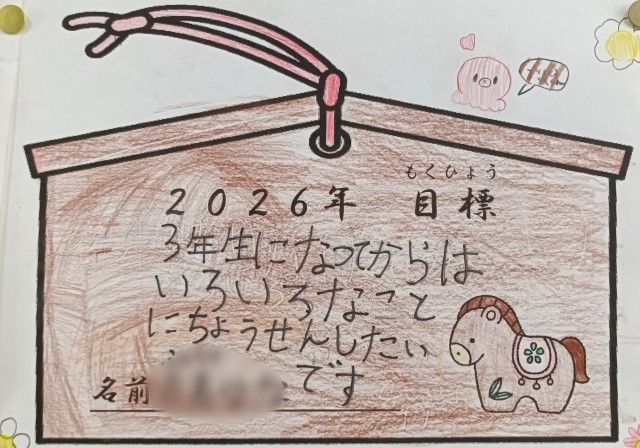 もくひょう
2026年 目標
3年生になってからは
いろいろなこと
にちょうせんしたい
です
名前